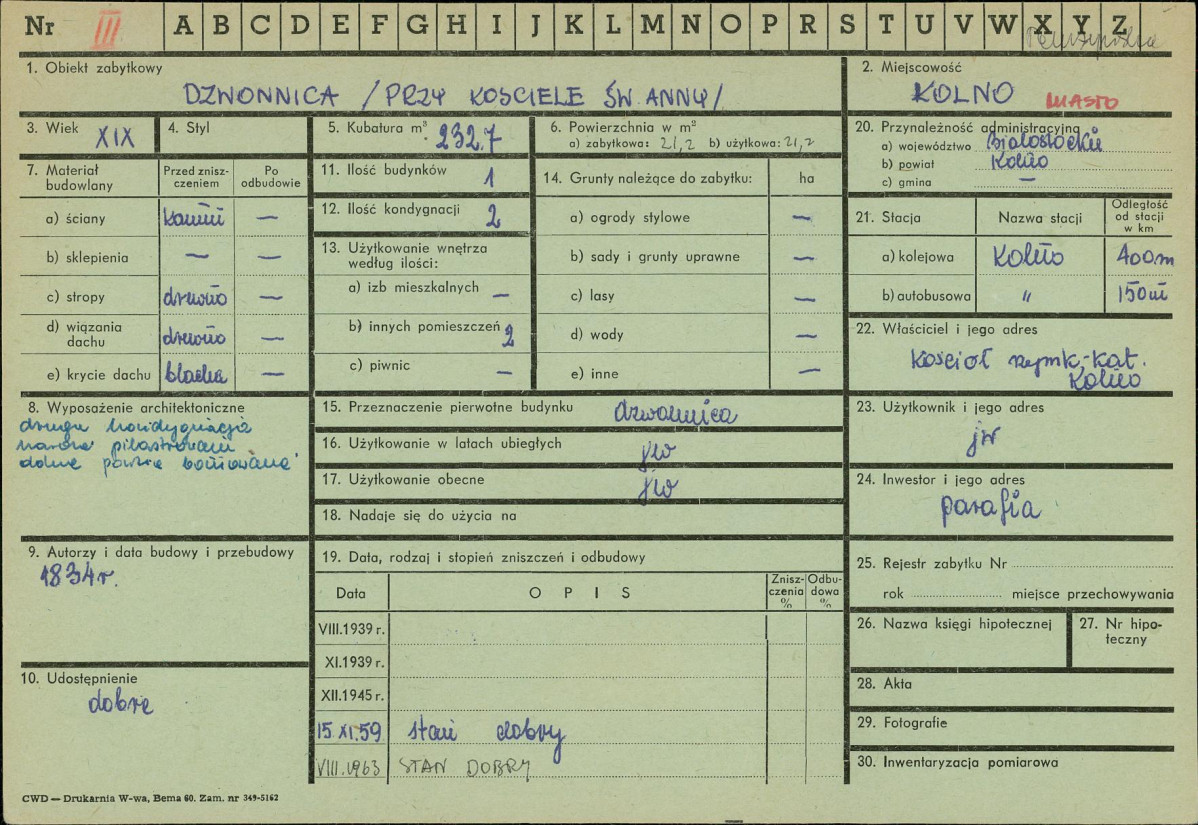 Nr III A B C D E F G H I J K L M N O P R S T U V W X Y Z
1. Obiekt zabytkowy
DZWONNICA /PRZY KOSCIELE ŚW. ANNY/
2. Miejscowość
KOLNO MIASTO
3. Wiek XIX
4. Styl
5. Kubatura m³ 232.7
6. Powierzchnia w m²
a) zabytkowa: 21,2 b) użytkowa: 21,2
20. Przynależność administracyjna
a) województwo Białostockie
b) powiat Kolno
c) gmina —
7. Materiał budowlany
Przed znisz-
czeniem
Po
odbudowie
a) ściany kamień —
b) sklepienia — —
c) stropy drewno —
d) wiązania
dachu drewno —
e) krycie dachu blacha —
11. Ilość budynków 1
12. Ilość kondygnacji 2
13. Użytkowanie wnętrza
według ilości:
a) izb mieszkalnych —
b) innych pomieszczeń 2
c) piwnic —
14. Grunty należące do zabytku: ha
a) ogrody stylowe —
b) sady i grunty uprawne —
c) lasy —
d) wody —
e) inne —
21. Stacja Nazwa stacji
Odległość
od stacji
w km
a) kolejowa Kolno 400m
b) autobusowa " 150m
22. Właściciel i jego adres
Kościół rzymk-kat.
Kolno
8. Wyposażenie architektoniczne
druga kondygnacja
pilastrowani
dolne
15. Przeznaczenie pierwotne budynku dzwonnica
16. Użytkowanie w latach ubiegłych jw
17. Użytkowanie obecne jw
18. Nadaje się do użycia na
23. Użytkownik i jego adres
jw
24. Inwestor i jego adres
parafia
9. Autorzy i data budowy i przebudowy
1834r.
19. Data, rodzaj i stopień zniszczeń i odbudowy
Data OPIS
Znisz-
czenia
%
Odbu-
dowa
%
VIII.1939 r.
XI.1939 r.
XII.1945 r.
15 XI.59 stan dobry
VIII.1963 STAN DOBRY
10. Udostępnienie
dobre
25. Rejestr zabytku Nr
rok miejsce przechowywania
26. Nazwa księgi hipotecznej
27. Nr hipo-
teczny
28. Akta
29. Fotografie
30. Inwentaryzacja pomiarowa
CWD — Drukarnia W-wa, Bema 60. Zam. nr 349-5162